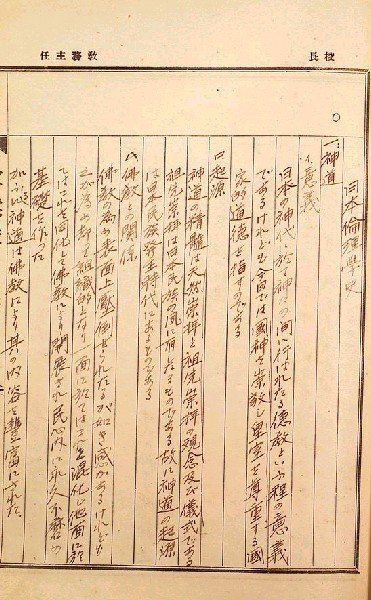 校長
教務主任
日本倫理學史
一、神道
イ、意義
日本の神代に於て神々の間に行はれたる德教といふ程の意義
であるけれども今日では國神を崇敬し皇室を尊重する國
家的道德を指すのである
ロ、起源
神道の精髓は天然崇拜と祖先崇拜の観念及び儀式である
祖先崇拜は日本民族の風に たるものである故に神道の起源
は日本民族發生時代にあるものである
ハ、佛教との関係
佛教の為め表面上壓倒せられたるが如き感があるけれども
之が為め却て組織的となり一面に於ては之を混化し他面に於
てはこれを同化して佛教により開發され民心内に永久不磨の
基礎を作った
神道は佛教により其の内容を豐富にされた。